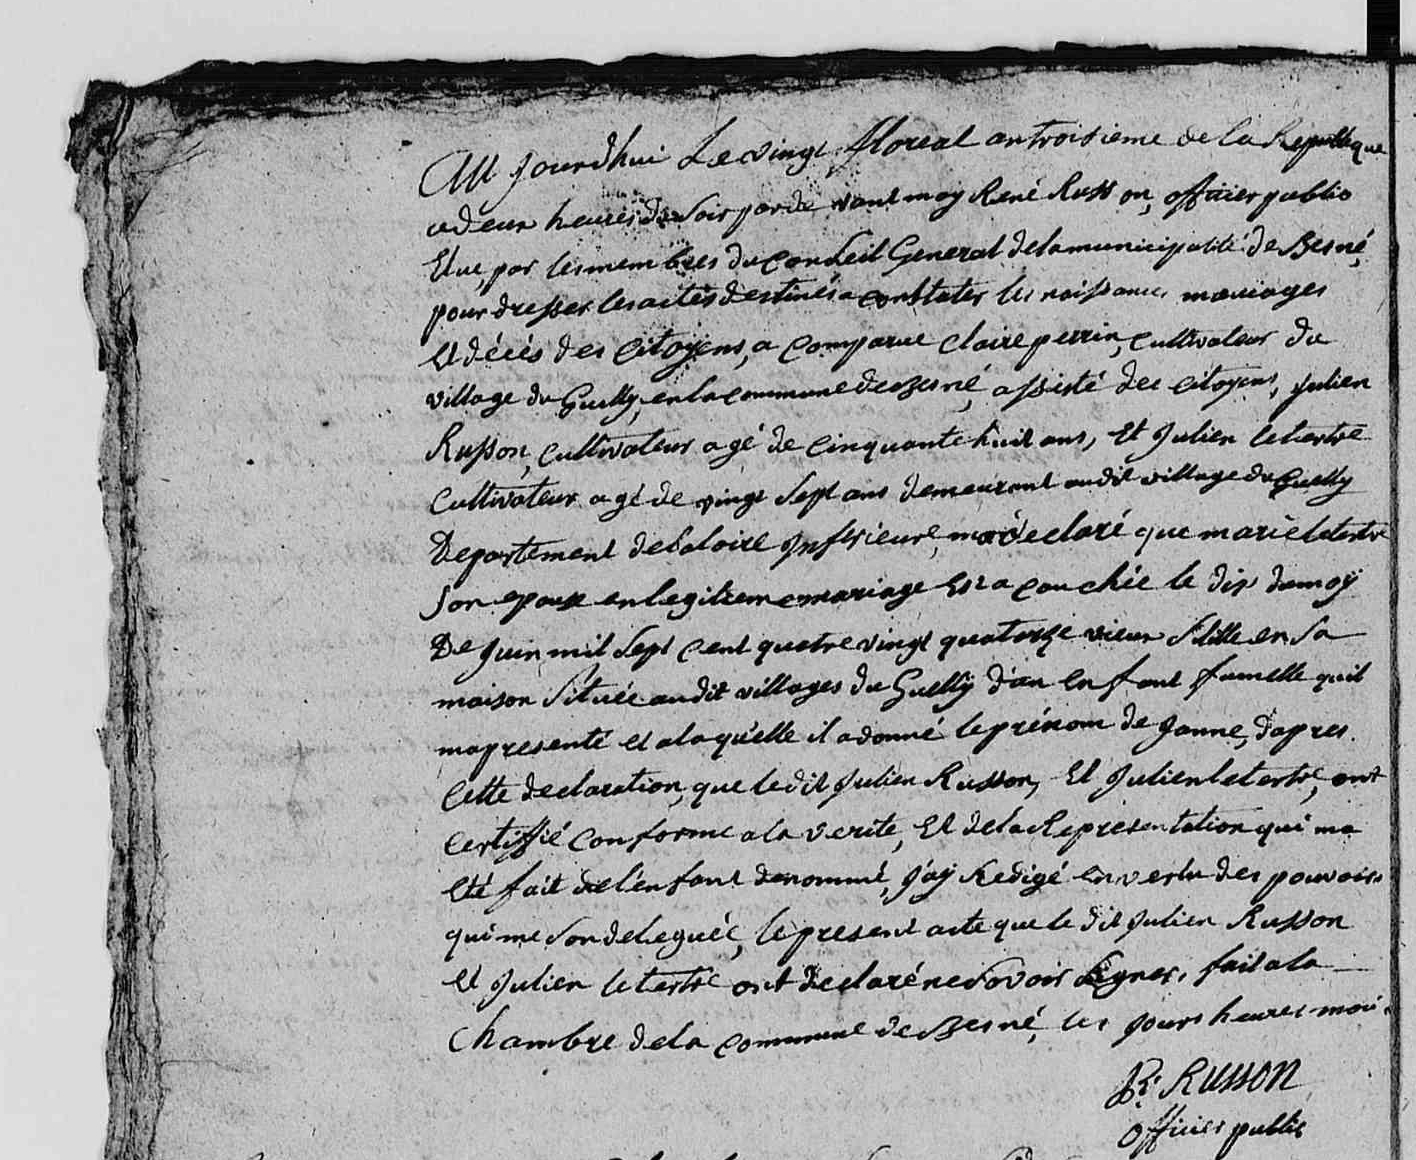 Au jourdhui Le vingt floreal an troisieme de la Republque
a deux heures du Soir par de vant moy René Russon, officier public
Elue, par les membres du conseil General de la municipalité de Besné,
pour dresser les actes destinés a constater les naissances mariages
et décés des citoyens, a comparue claire perrin, cultivateur du
village du Guelly, en la commune de Besné, assisté des citoyens, julien
Russon, cultivateur agé de cinquante huit ans, et julien letertre
cultivateur agé de vingt sept ans demeurant audit village du Guelly
Departement de la loire Inferieure, ma declaré que marie letertre
son epouse en legitieme mariage Est a couchée le dix du moy
De juin mil sept cent quatre vingt quatorze vieux stille en sa
maison située audit villages du Guelly d'un enfant fumelle quil
ma presenté et a laquelle il a donné le prénom de janne, d'apres
cette declaration, que le dit julien Russon, Et julien letertre, ont
certiffié conforme a la verite, Et de la Representation qui ma
eté fait de l'enfant denommé, j'ay Redigé en vertu des pouvoirs
qui me son deleguéé, le present acte que le dit julien Russon
et julien letertre ont declaré ne savoir signer, fait a la
chambre de la commune de Besné, les jours heures moi
R: RUSSON
officier public